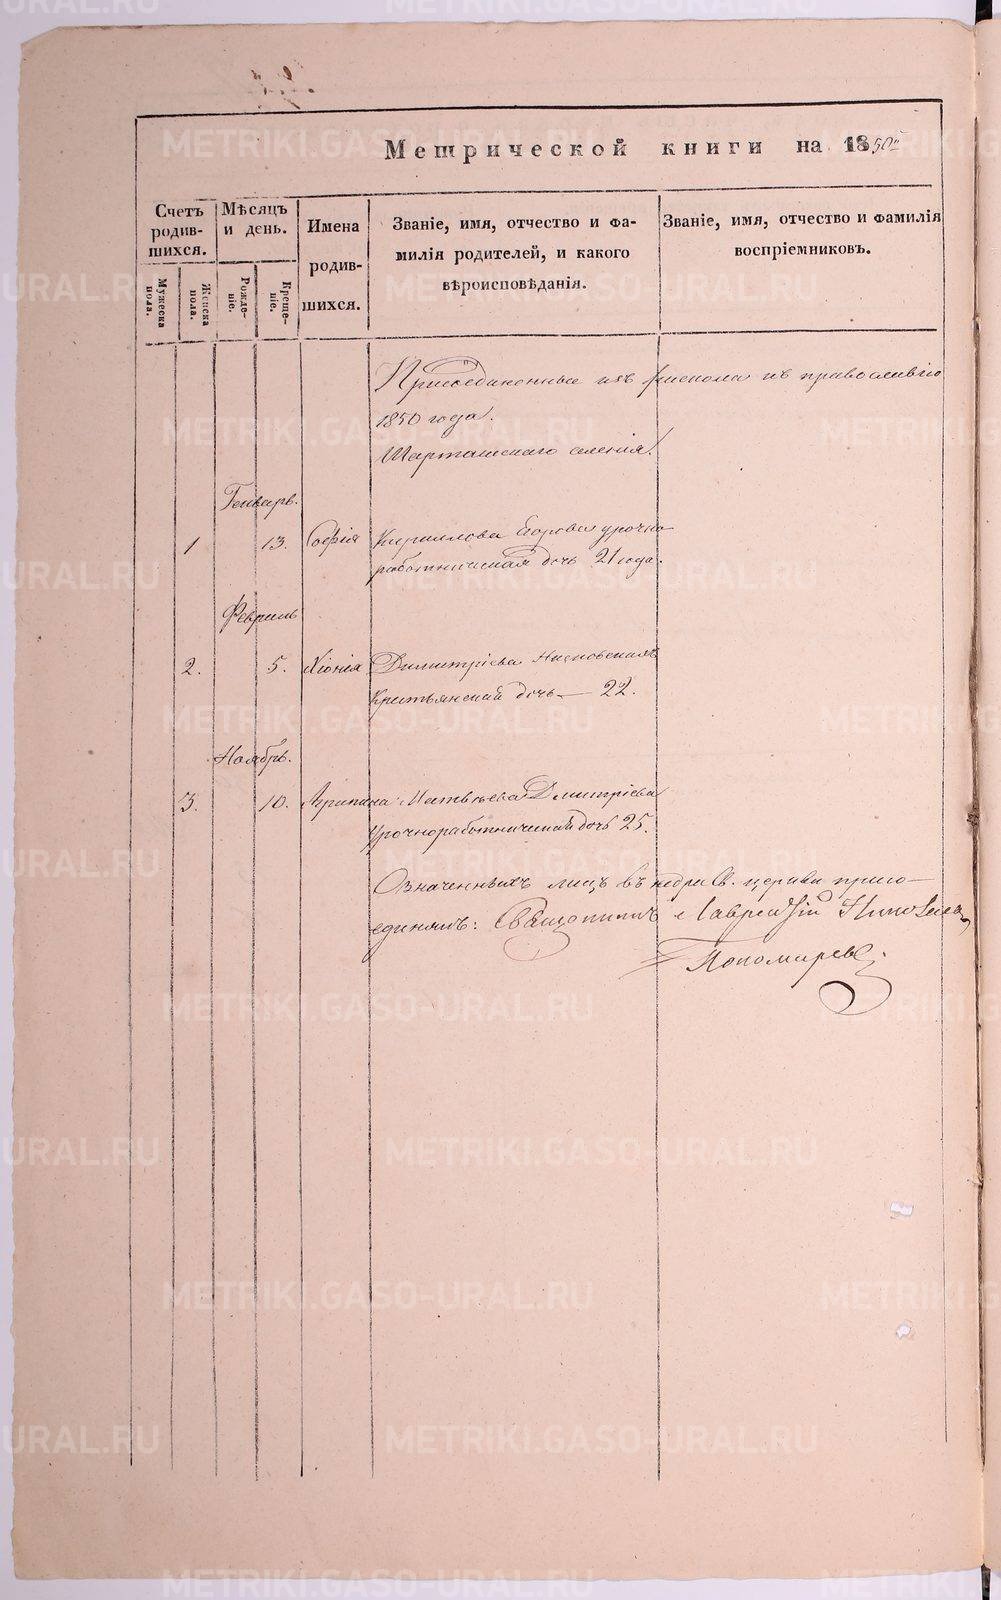 Метрической книги на 1850й
Счетъ родив-
шихся.
Мѣсяцъ
и день.
Имена
родив-
шихся.
Званіе, имя, отчество и фа-
милія родителей, и какого
вѣроисповѣданія.
Званіе, имя, отчество и фамилія
воспріемниковъ.
Мужеска
пола.
Женска
пола.
Рожде-
ніе.
Креще-
ніе.
Присоединенные изъ раскола къ православію
1850 года.
Шарташскаго селенія.
Генварь.
1 13. Софія Кириллова Егорова урочно-
работническая дочь 21 года.
Февраль
2. 5. Хіонія Димитріева
Крестьянская дочь — 22.
Ноябрь.
3. 10. Агрипина Матвѣева Дмитріева
Урочноработническая дочь 25.
Означенныхъ лицъ въ нѣдра Св. церкви присо-
единялъ: Священникъ Лаврентій
Пономаревъ
METRIKI.GASO-URAL.RU